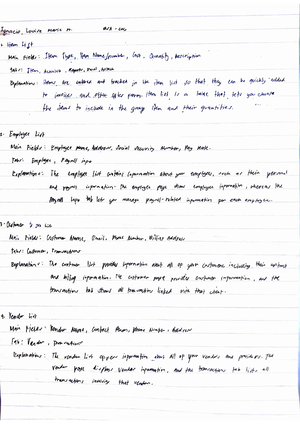 Ignacio, Louise Marie M.
1. Item List
Main Fields: Item Type, Item Name/Number, Cost, Quantity, Description
Tabs: Item,
Explanation: Items are entered and tracked in the item list so that they can be quickly added
to invoices and other sales forms. Item list is a table that lets you choose
the items to include in the group item and their quantities.
2. Employee List
Main Fields: Employee Name, Address, Social Security Number, Pay Rate.
Tabs: Employee, Payroll Info
Explanations: The employee list contains information about your employees, such as their personal
and payroll information. The employee page shows employee information, whereas the
Payroll Info tab lets you manage payroll-related information for each employee.
3. Customer & Job List
Main Fields: Customer Name, Email, Phone Number, Billing Address
Tabs: Customer, Transactions
Explanation: The customer list provides information about all of your customers, including their contact
and billing information. The customer page provides customer information, and the
transactions tab shows all transactions linked with that client.
4. Vendor List
Main Fields: Vendor Name, Contact Name, Phone Number, Address
Tab: Vendor, Transactions
Explanations: The vendor list offers information about all of your vendors and providers. The
vendor page displays vendor information, and the transactions tab lists all
transactions involving that vendor.